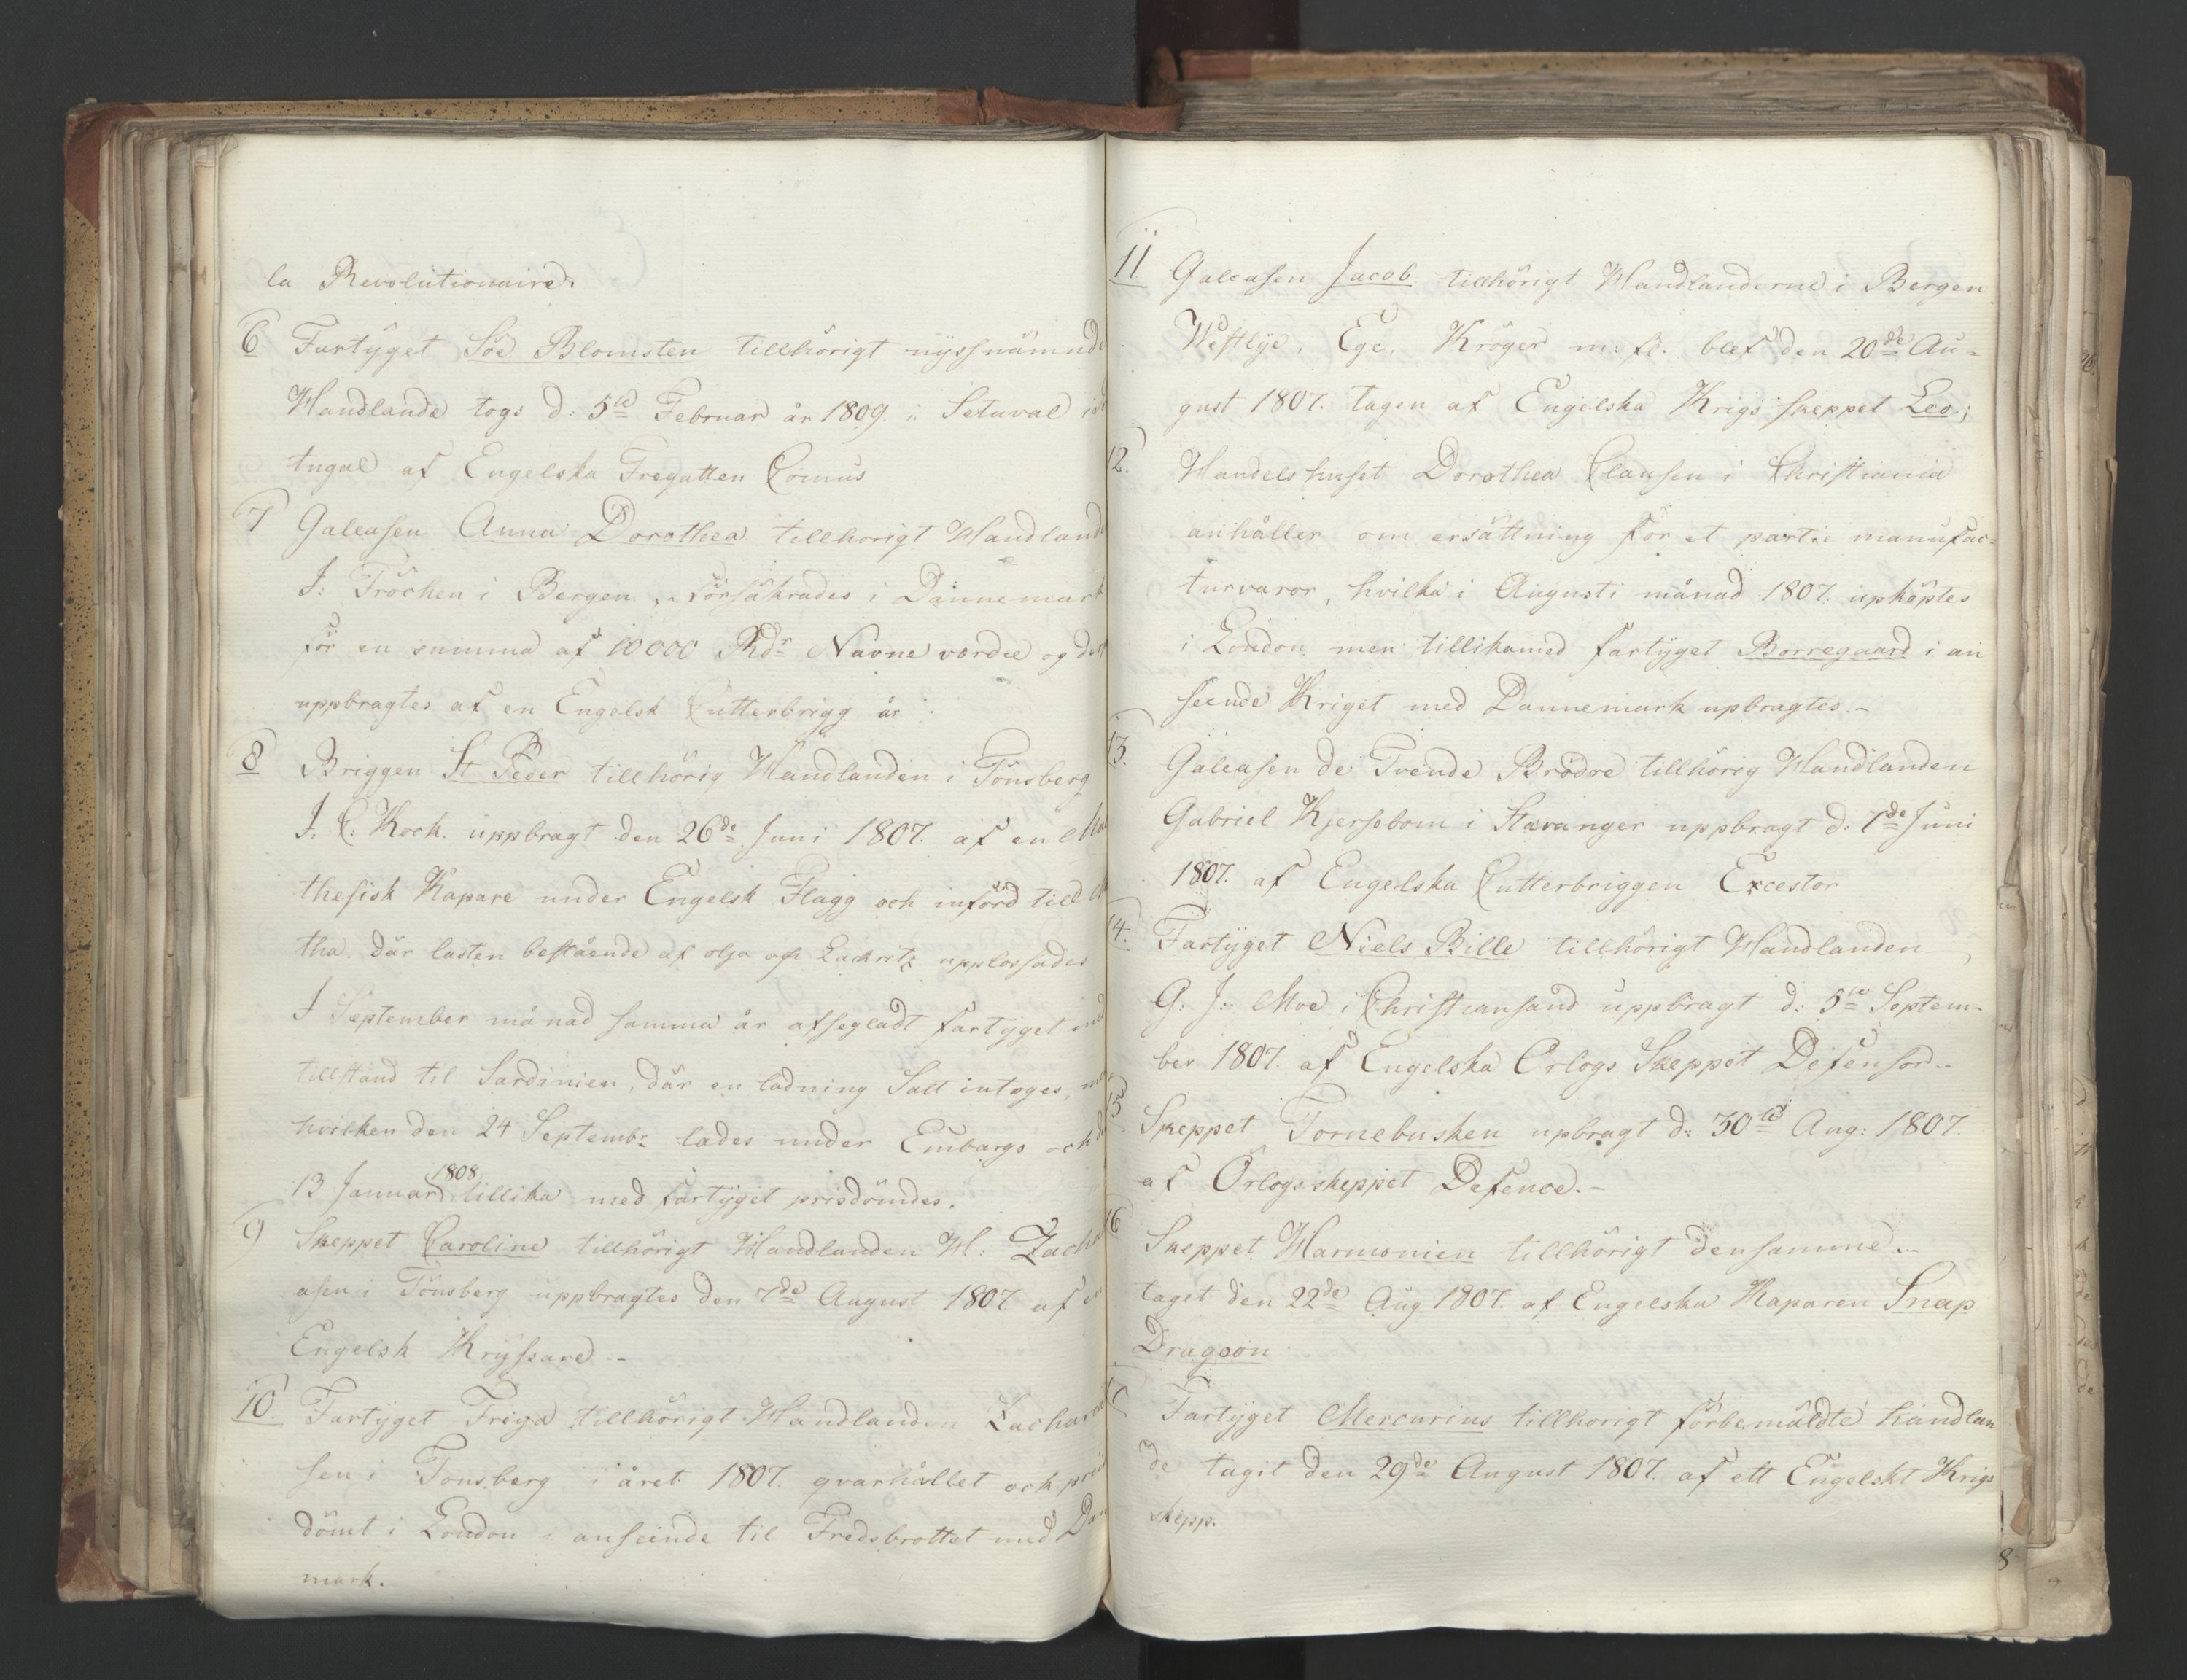 la Revolutionaire.
6 Fartÿget Söe Blomsten tillhörigt nÿssnämnde
Handlande togs d: 5te Februar år 1809. i Setuval i
tugal af Engelska Fregatten Comus
7 Galeasen Anna Dorothea tillhörigt Handland
J: Fröchen i Bergen, försäkrades i Dannemark
för en summa af 10000 Rdr Navne værdie og
uppbragtes af en Engelsk Cutterbrigg år
8 Briggen St Peder tillhörig Handlanden i Tönsberg
J. C: Koch. uppbragt den 26de Juni 1807. af en Mal
thesisk Kapare under Engelsk Flagg och införd till
tha, där lasten bestående af olja och Lackritz upplossades
I September månad samma år afsegladt fartÿget
tillstånd til Sardinien, där en ladning Salt intoges,
hvilken den 24 Septembr lades under Embargo och
13 Januari 1808 tillika med fartÿget prisdömdes.
9 Skeppet Caroline tillhörigt Handlanden H: Zacha
asen i Tönsberg uppbragtes den 7de August 1807 af en
Engelsk Krÿssare -
10. Fartÿget Friga tillhörigt Handlanden Zacharia
sen i Tönsberg i året 1807. qvarhållet och pris
dömt i London i anseende til Fredsbrottet med Dan
mark.
11 Galeasen Jacob tillhörigt Handlanderne i Bergen
Westlÿe, Ege, Kröger m: fl. blef den 20de Au-
gust 1807. tagen af Engelska Krigsskeppet Leo;
12. Handelshuset Dorothea Clausen i Christiania
anhåller om ersättning för et parti manufac-
turvaror, hvilka i Augusti månad 1807. upköptes
i London men tillikamed fartÿget Borregaard i an
seende Kriget med Dannemark upbragtes. -
13. Galeasen de Tvende Brödre tillhörig Handlanden
Gabriel Kjersebom i Stavanger uppbragt d: 1de Juni
1807. af Engelska Cutterbriggen Excestor
14. Fartÿget Niels Bille tillhörigt Handlanden
G. J: Moe i Christiansand uppbragt d: 5te Septem-
ber 1807. af Engelska Orlogs Skeppet Defensor. -
15 Skeppet Tornebusken upbragt d: 30te Aug: 1807.
af Örlogsskeppet Defence. -
16 Skeppet Harmonien tillhörigt densamme. -
taget den 22de Aug 1807. af Engelska Kaparen Snap
Dragoon
Fartÿget Mercurius tillhörigt förbemäldte handlan
de tagit den 29de August 1807. af ett Engelskt Krigs
skepp.
8